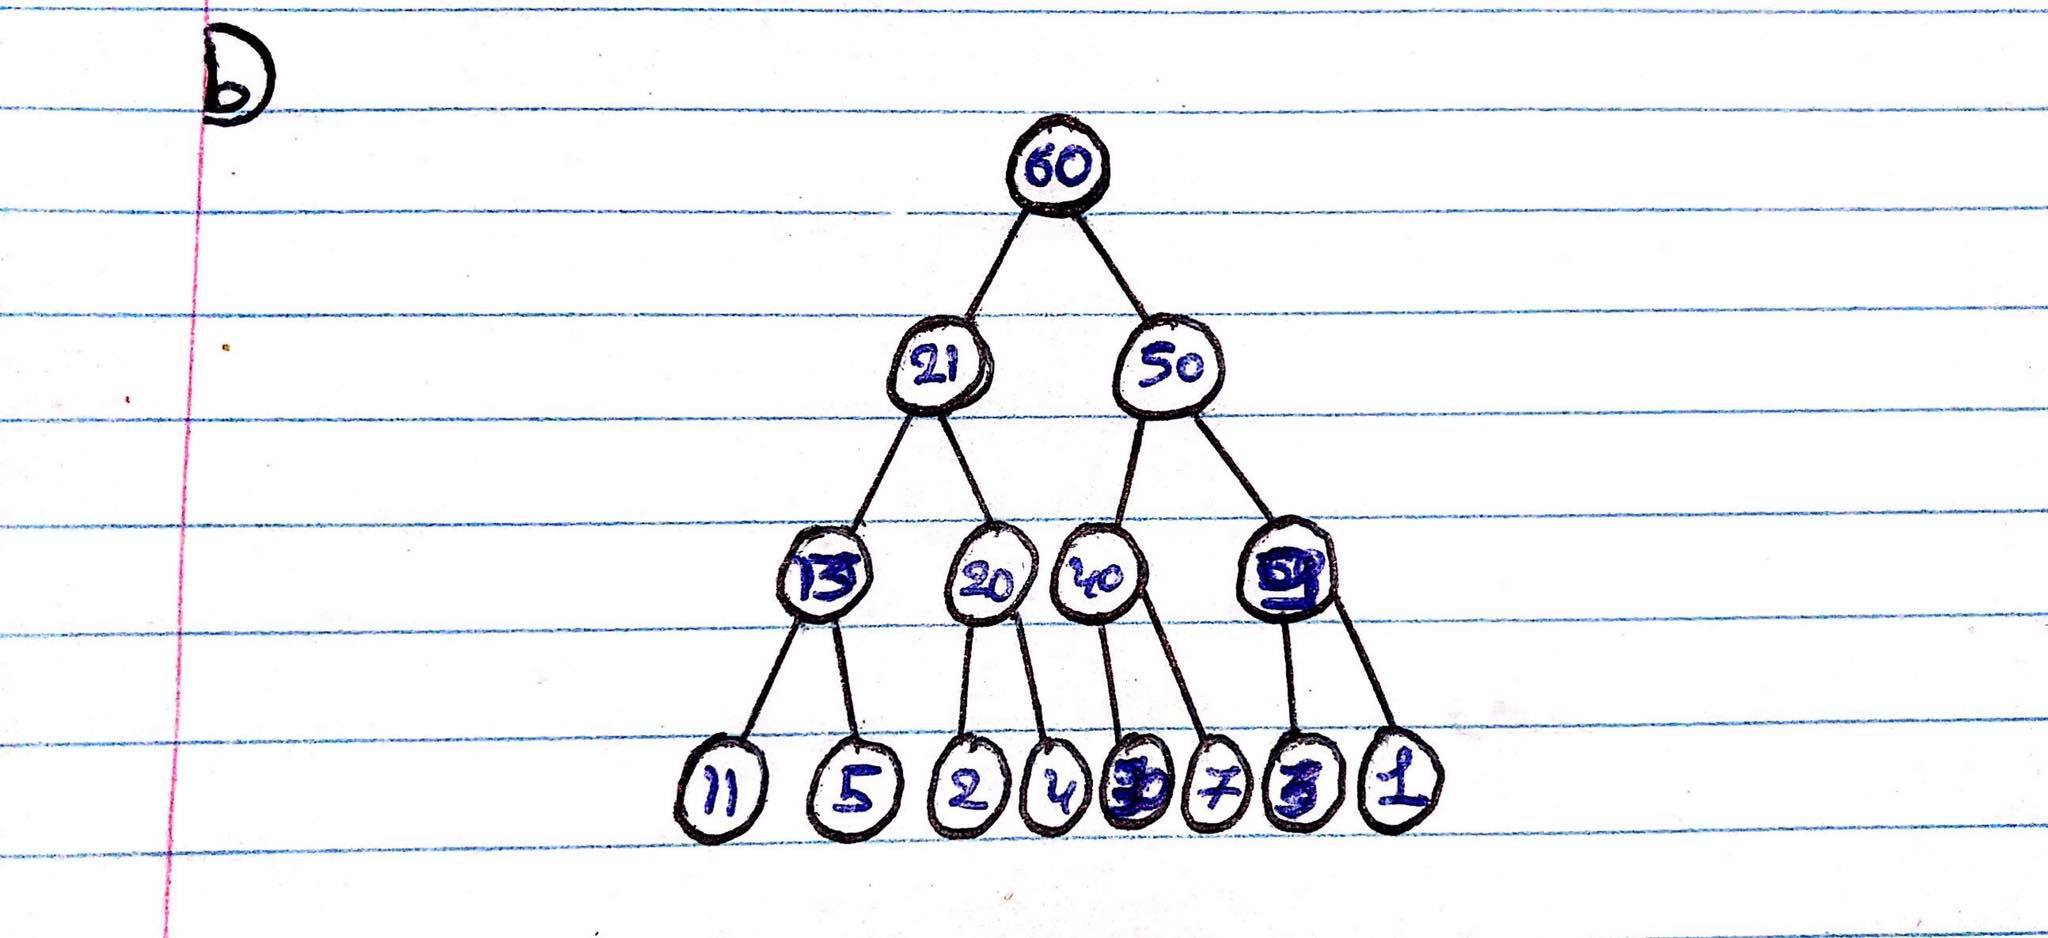 b
60
21 50
13 20 40
11 5 2 4 30 7 3 1